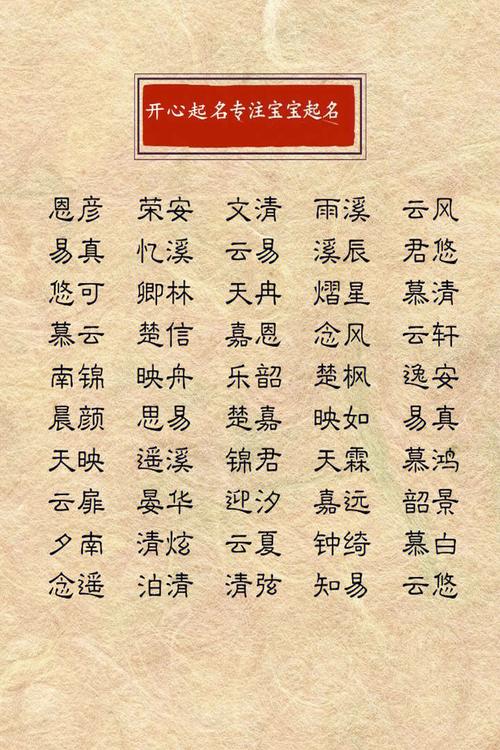 开心起名专注宝宝起名
恩彦 荣安 文清 雨溪 云风
易真 忆溪 云易 溪辰 君悠
悠可 卿林 天冉 熠星 慕清
慕云 楚信 嘉恩 念风 云轩
南锦 映舟 乐韶 楚枫 逸安
晨颜 思易 楚嘉 映如 易真
天映 遥溪 锦君 天霖 慕鸿
云扉 晏华 迎汐 嘉远 韶景
夕南 清炫 云夏 钟绮 慕白
念遥 泊清 清弦 知易 云悠